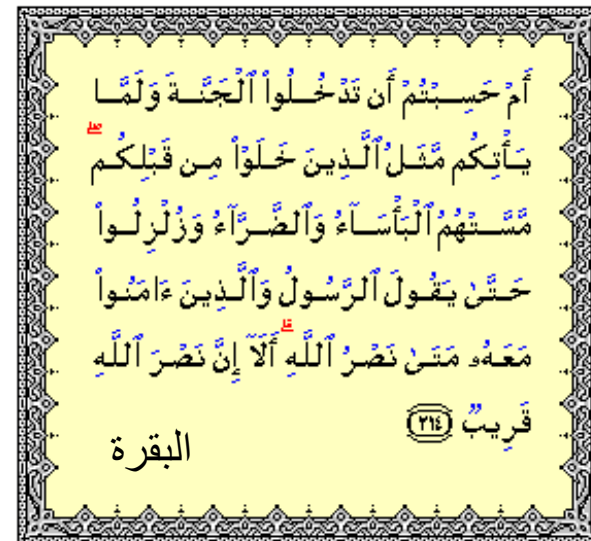 أَمْ حَسِبْتُمْ أَن تَدْخُلُوا۟ ٱلْجَنَّةَ وَلَمَّا
يَأْتِكُم مَّثَلُ ٱلَّذِينَ خَلَوْا۟ مِن قَبْلِكُم ۖ
مَّسَّتْهُمُ ٱلْبَأْسَآءُ وَٱلضَّرَّآءُ وَزُلْزِلُوا۟
حَتَّىٰ يَقُولَ ٱلرَّسُولُ وَٱلَّذِينَ ءَامَنُوا۟
مَعَهُۥ مَتَىٰ نَصْرُ ٱللَّهِ ۗ أَلَآ إِنَّ نَصْرَ ٱللَّهِ
قَرِيبٌ ٢١٤
البقرة